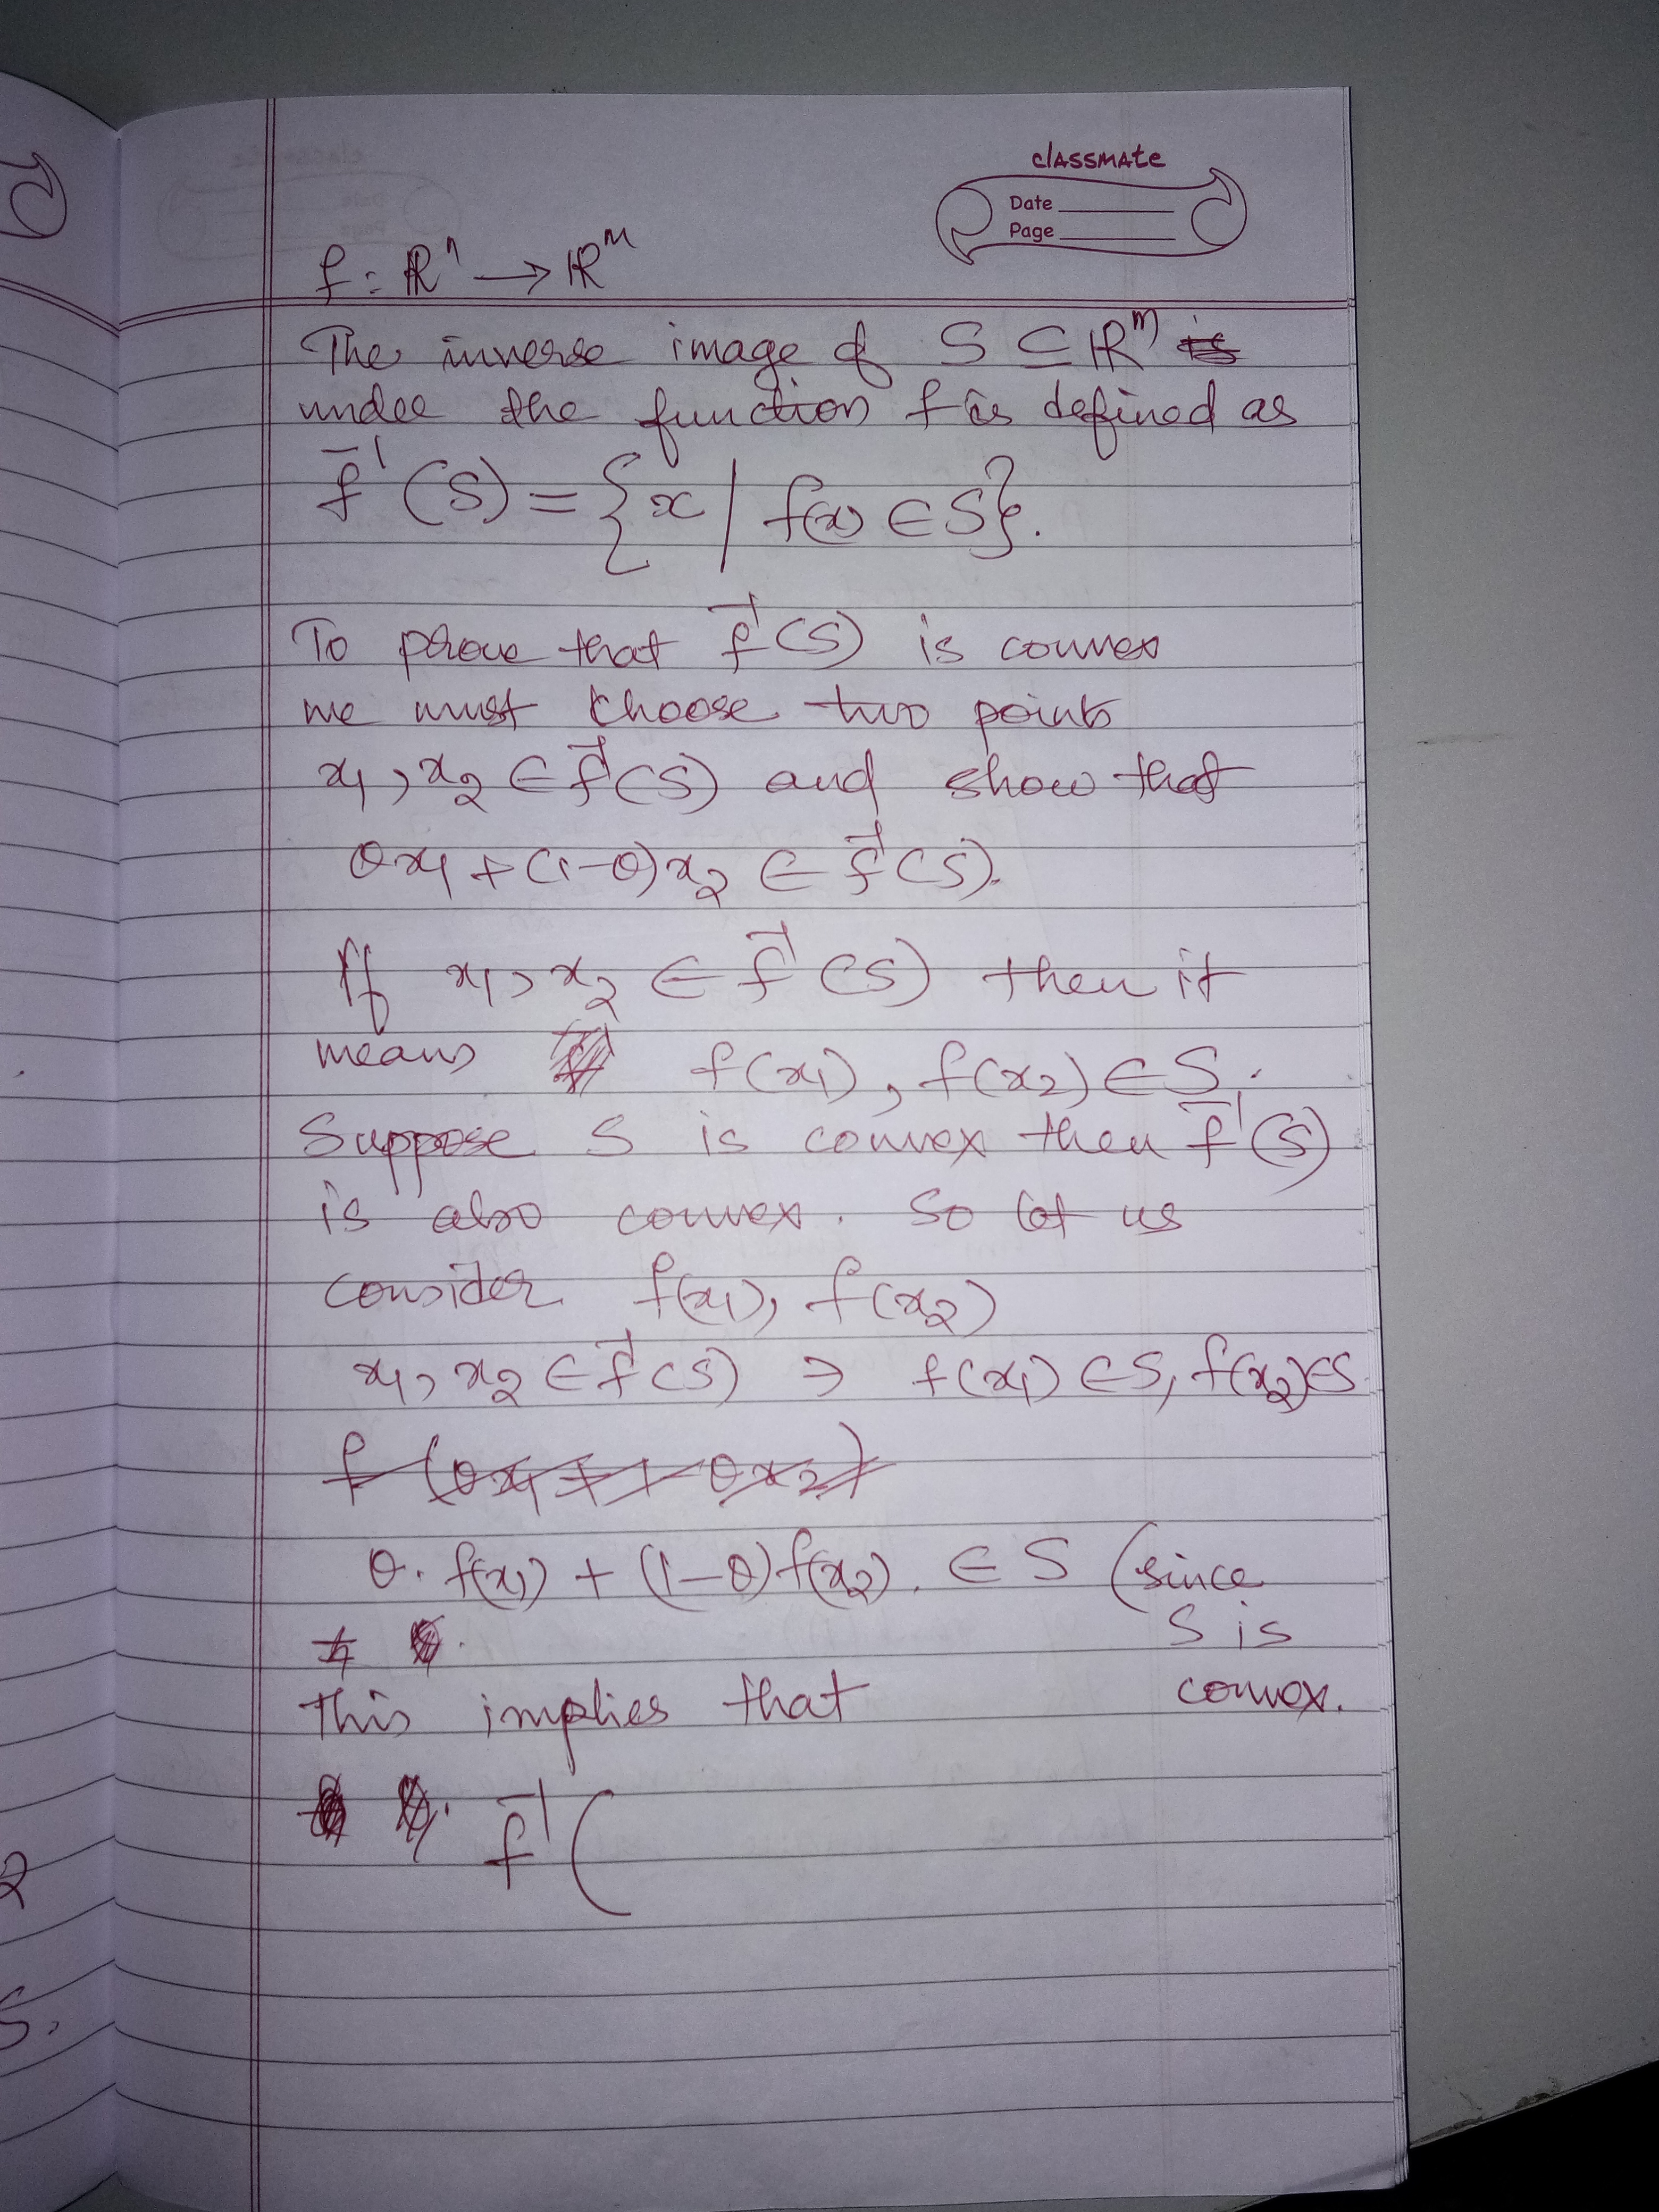 classmate
Date
Page
f : ℝⁿ → ℝᵐ
The inverse image of S ⊆ ℝᵐ is
under the function f is defined as
f⁻¹(S) = {x | f(x) ∈ S}.
To prove that f⁻¹(S) is convex
we must choose two points
x₁, x₂ ∈ f⁻¹(S) and show that
θx₁ + (1-θ)x₂ ∈ f⁻¹(S).
If x₁, x₂ ∈ f⁻¹(S) then it
means f(x₁), f(x₂) ∈ S.
Suppose S is convex then f⁻¹(S)
is also convex. So let us
consider f(x₁), f(x₂)
x₁, x₂ ∈ f⁻¹(S) ⇒ f(x₁) ∈ S, f(x₂) ∈ S
f (θx₁ + 1 - θx₂)
θ. f(x₁) + (1-θ)f(x₂). ∈ S (since
S is
This implies that convex.
f⁻¹(
2
S.